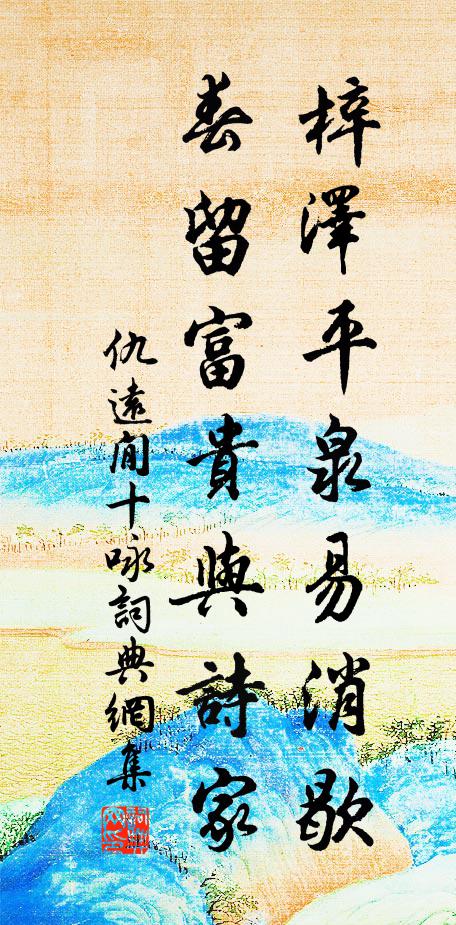 梓澤平泉易消歇
春留富貴與詩家
仇遠閒十咏詞典網集